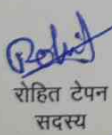 Rohit
रोहित टेपन
सदस्य